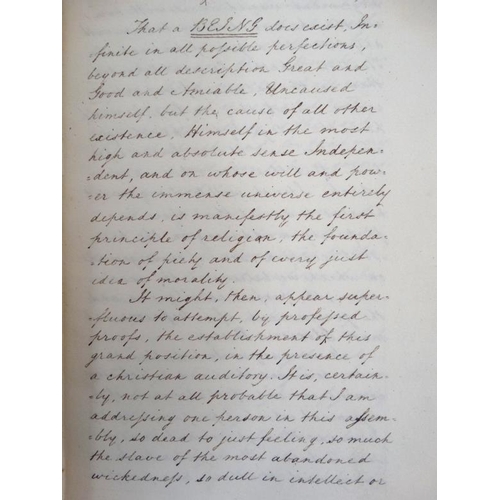 That a BEING does exist, In-
finite in all possible perfections,
beyond all description Great and
Good and Amiable, Uncaused
himself, but the cause of all other
existence, Himself in the most
high and absolute sense Indepen-
-dent, and on whose will and pow-
-er the immense universe entirely
depends, is manifestly the first
principle of religion, the founda-
-tion of piety and of every just
idea of morality.
It might, then, appear super-
-fluous to attempt, by professed
proofs, the establishment of this
grand position, in the presence of
a christian auditory. It is, certain-
-ly, not at all probable that I am
addressing one person in this assem-
-bly, so dead to just feeling, so much
the slave of the most abandoned
wickedness, so dull in intellect or